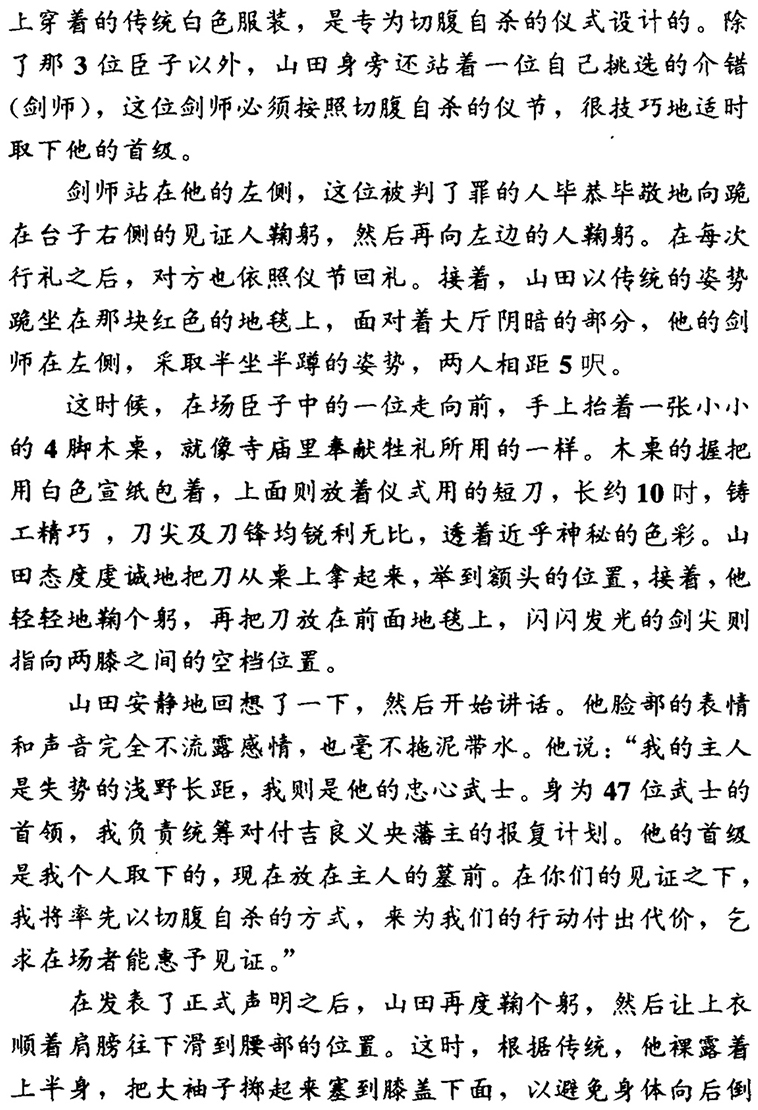 上穿着的传统白色服装，是专为切腹自杀的仪式设计的。除
了那 3 位臣子以外，山田身旁还站着一位自己挑选的介错
(剑师)，这位剑师必须按照切腹自杀的仪节，很技巧地适时
取下他的首级。
剑师站在他的左侧，这位被判了罪的人毕恭毕敬地向跪
在台子右侧的见证人鞠躬，然后再向左边的人鞠躬。在每次
行礼之后，对方也依照仪节回礼。接着，山田以传统的姿势
跪坐在那块红色的地毯上，面对着大厅阴暗的部分，他的剑
师在左侧，采取半坐半蹲的姿势，两人相距 5 呎。
这时候，在场臣子中的一位走向前，手上抬着一张小小
的 4 脚木桌，就像寺庙里奉献牲礼所用的一样。木桌的握把
用白色宣纸包着，上面则放着仪式用的短刀，长约 10 吋，铸
工精巧，刀尖及刀锋均锐利无比，透着近乎神秘的色彩。山
田态度虔诚地把刀从桌上拿起来，举到额头的位置，接着，他
轻轻地鞠个躬，再把刀放在前面地毯上，闪闪发光的剑尖则
指向两膝之间的空档位置。
山田安静地回想了一下，然后开始讲话。他脸部的表情
和声音完全不流露感情，也毫不拖泥带水。他说：“我的主人
是失势的浅野长距，我则是他的忠心武士。身为 47 位武士的
首领，我负责统筹对付吉良义央藩主的报复计划。他的首级
是我个人取下的，现在放在主人的墓前。在你们的见证之下，
我将率先以切腹自杀的方式，来为我们的行动付出代价，乞
求在场者能惠予见证。”
在发表了正式声明之后，山田再度鞠个躬，然后让上衣
顺着肩膀往下滑到腰部的位置。这时，根据传统，他裸露着
上半身，把大袖子掷起来塞到膝盖下面，以避免身体向后倒